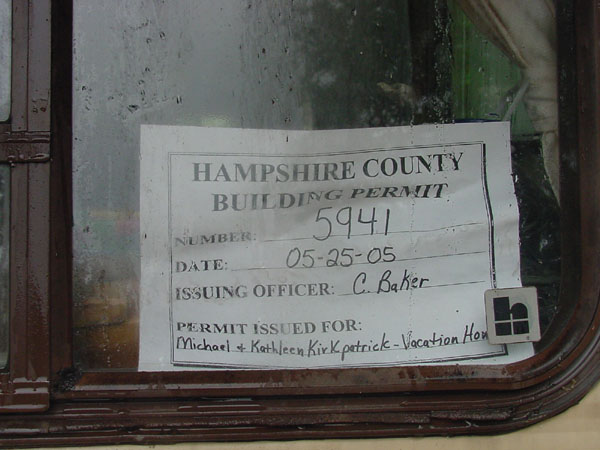 HAMPSHIRE COUNTY
BUILDING PERMIT
NUMBER: 5941
DATE: 05-25-05
ISSUING OFFICER: C. Baker
PERMIT ISSUED FOR:
Michael + Kathleen Kirkpatrick - Vacation